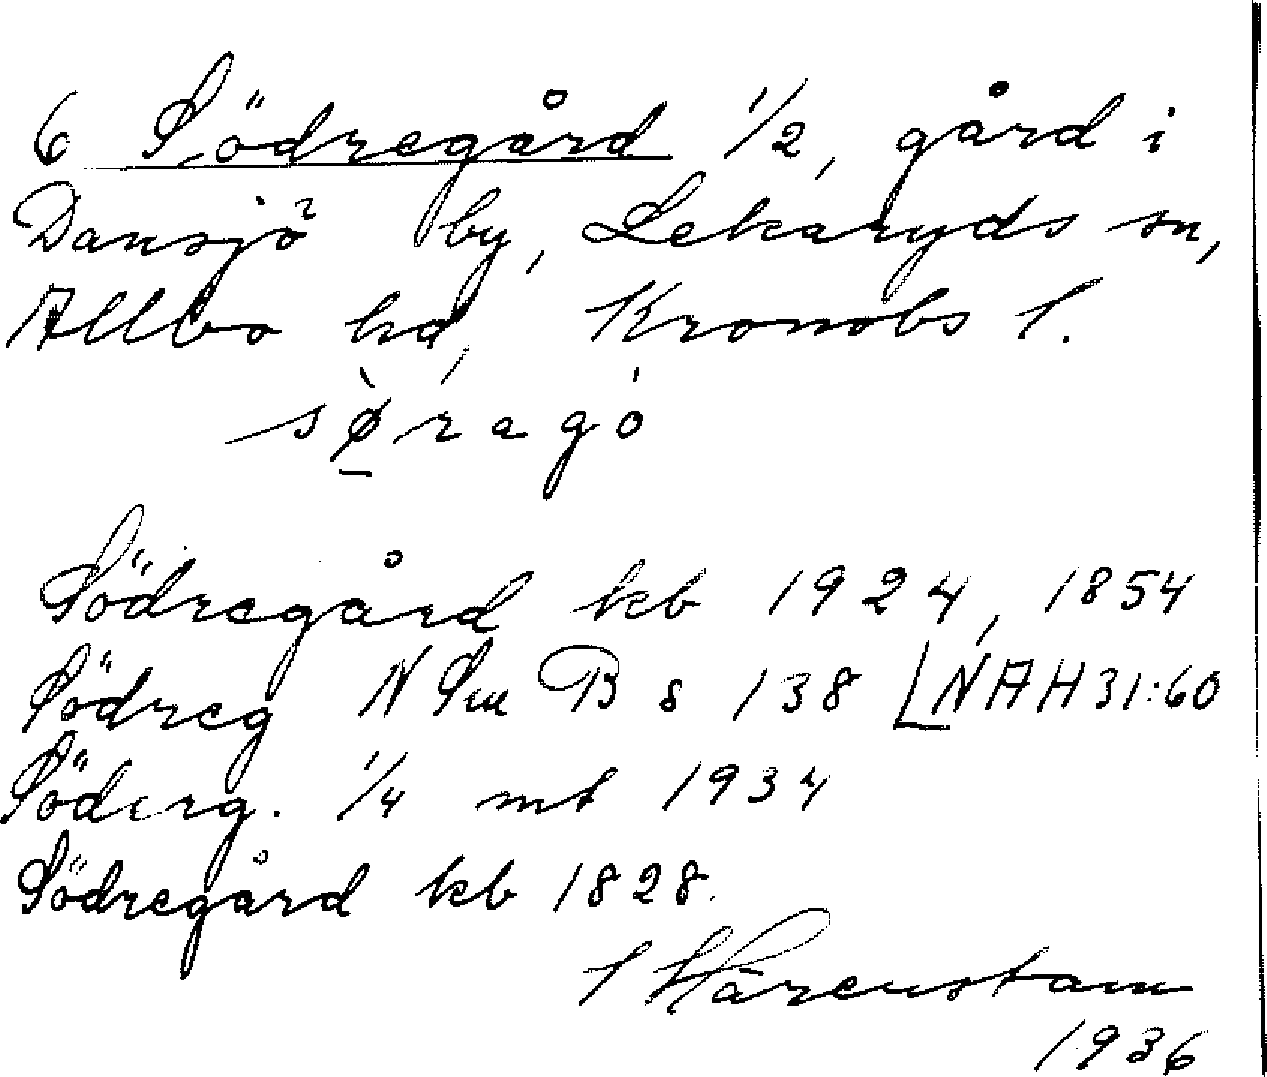 6 Södregård 1/2, gård i
Dansjö by, Lekaryds sn,
Allbo hd, Kronobs l.
sø̀ragó
Södregård kb 1924, 1854
Södreg N Sm B s 138 LNAH31:60
Söderg. 1/4 mt 1934
Södregård kb 1828.
I Härenstam
1936